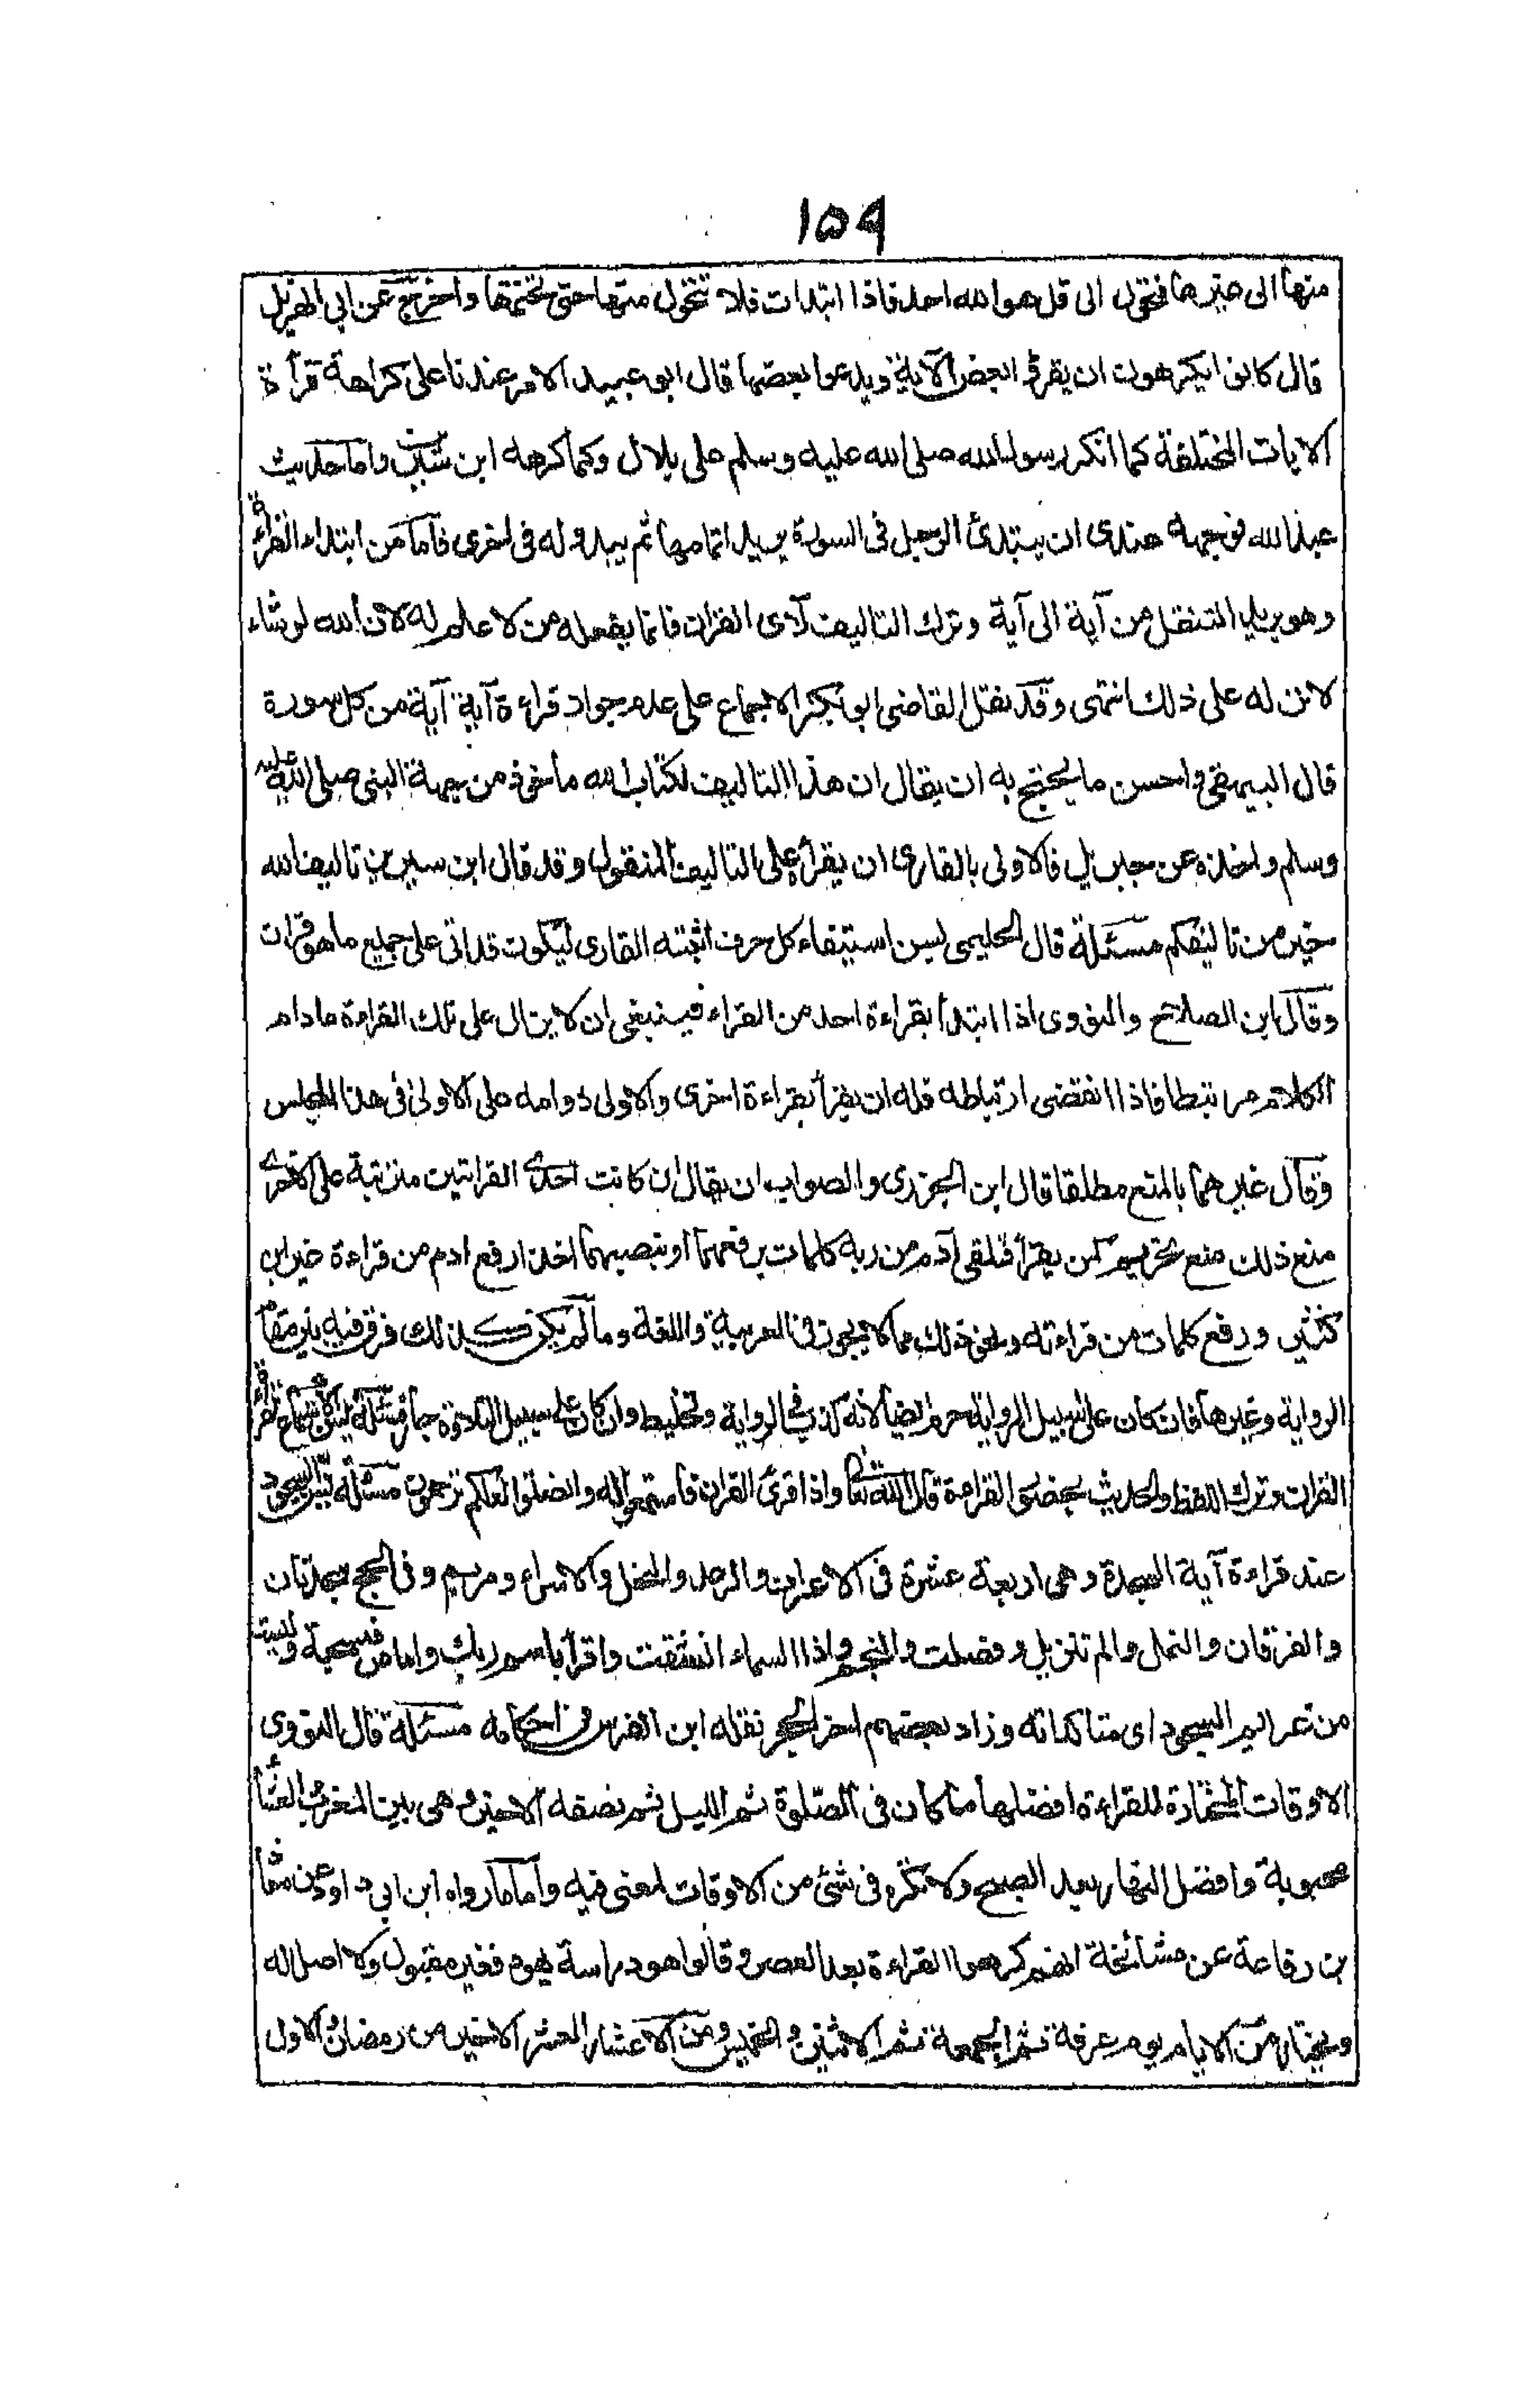 ١٥٩
منها الى غيرها فتحول الى قل هو الله احد فاذا ابتدات فلا تتحول منها حتى تختمها واخرج عن ابي الهذيل
قال كانوا يكرهون ان يقرؤا بعض الآية ويدعوا بعضها قال ابو عبيد الامر عندنا على كراهة قرأة
الايات المختلفة كما انكر رسول الله صلى الله عليه وسلم على بلال وكما كرهه ابن سيرين واما حديث
عبد الله فوجهه عندى ان يبتدئ الرجل فى السورة يريد اتمامها ثم يبدو له فى اخرى فاما من ابتداء القراءة
وهو يريد التنقل من آية الى آية وترك التاليف لآى القران فانما يفعله من لا علم له لان الله لو شاء
لانزله على ذلك انتهى وقد نقل القاضى ابو بكر الاجماع على عدم جواز قراءة آية آية من كل سورة
قال البيهقى واحسن ما يحتج به ان يقال ان هذا التاليف لكتاب الله ماخوذ من جهة النبى صلى الله عليه
وسلم واخذه عن جبريل فالاولى بالقارى ان يقرأه على التاليف المنقول وقد قال ابن سيرين تاليف الله
خير من تاليفكم مسئلة قال الحليمى يسن استيفاء كل حرف اثبته القارى ليكون قد اتى على جميع ما هو قران
وقال ابن الصلاح والنووى اذا ابتدأ بقراءة احد من القراء فينبغى ان لا يزال على تلك القراءة ما دام
الكلام مرتبطا فاذا انقضى ارتباطه فله ان يقرأ بقراءة اخرى والاولى دوامه على الاولى فى هذا المجلس
وقال غيرهما بالمنع مطلقا قال ابن الجزرى والصواب ان يقال ان كانت احدى القراتين مترتبة على الاخرى
منع ذلك منع تحريم كمن يقرأ فتلقى آدم من ربه كلمات برفعهما او بنصبهما اخذ ارفع ادم من قراءة غير ابن
كثير ورفع كلمات من قراءته ونحو ذلك مما لا يجوز فى العربية واللغة وما لم يكن كذلك فرق فيه بين مقام
الرواية وغيرها فان كان على سبيل الرواية حرم ايضا لانه كذب فى الرواية وتخليط وان كان على سبيل التلاوة جاز مسئلة يسن الاستماع لقراءة
القران وترك اللغط والحديث بحضور القراءة قال الله تعالى واذا قرئ القران فاستمعوا له وانصتوا لعلكم ترحمون مسئلة يسن السجود
عند قراءة آية السجدة وهى اربعة عشرة فى الاعراف والرعد والنحل والاسراء ومريم وفى الحج سجدتان
والفرقان والنمل والم تنزيل وفصلت والنجم واذا السماء انشقت واقرأ باسم ربك واما ص فمستحبة وليست
من عزايم السجود اى متاكداته وزاد بعضهم اخر الحجر نقله ابن الفرس فى احكامه مسئلة قال النووى
الاوقات المختارة للقراءة افضلها ما كان فى الصلوة ثم الليل ثم نصفه الاخير وهى بين المغرب والعشا
محبوبة وافضل النهار بعد الصبح ولا تكره فى شئ من الاوقات لمعنى فيه واما ما رواه ابن ابى داود عن معا
بن رفاعة عن مشائخه انهم كرهوا القراءة بعد العصر وقالوا هو دراسة يهود فغير مقبول ولا اصل له
ويختار من الايام يوم عرفة ثم الجمعة ثم الاثنين والخميس ومن الاعشار العشر الاخير من رمضان والاول